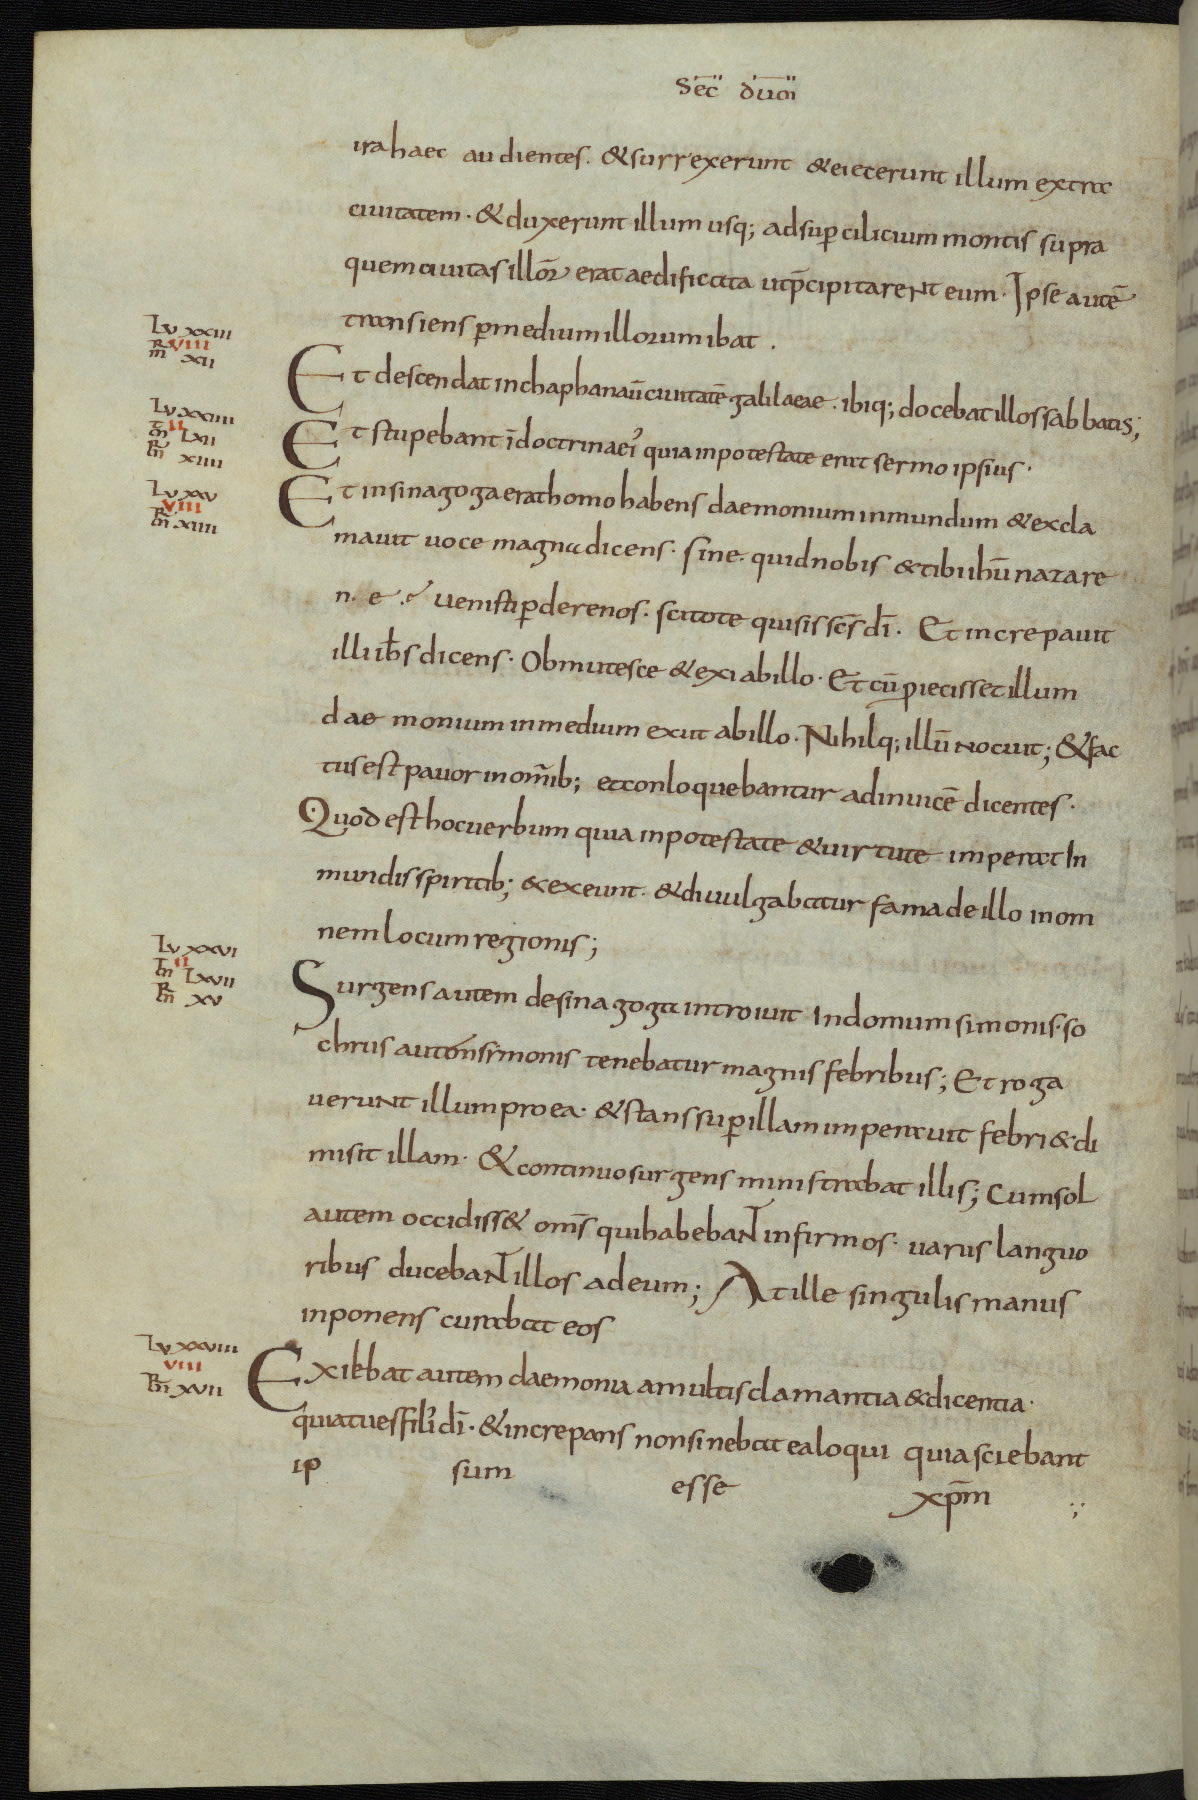 Sec̄ dūm
ira haec audientes. & surrexerunt & eiecerunt illum extra
ciuitatem · & duxerunt illum usq; ad superciliuum montis supra
quem ciuitas illoꝝ̄ erat aedificata ut p̄cipitarent eum · Ipse autē
transiens ꝑ medium illorum ibat .
Lu xxiii
viii
m̄r xii
Et descendat in chapharnaū ciuitatē galilaeae · ibiq; docebat illos sabbatis;
Lu xxiiii
ii
Lxii
m̄r xiiii
Et stupebant ī doctrina ei᾽ quia in potestate erat sermo ipsius ·
Lu xxv
viii
m̄r xiiii
Et in sinagoga erat homo habens daemonium inmundum & excla
mauit uoce magna dicens · sine · quid nobis & tibi ihū nazare
n · e · uenisti ꝑdere nos · scitote qui sis sc̄s dī · Et increpauit
illi ih̄s dicens · Obmutesce & exi ab illo · Et cū ꝓiecisset illum
daemonium in medium exiit ab illo · Nihilq; illū nocuit; & fac
tus est pauor in om̄ib; et conloquebantur ad inuicē dicentes ·
Quod est hoc uerbum quia in potestate & uirtute imperat in
mundis spiritib; & exeunt · & diuulgabatur fama de illo in om
nem locum regionis;
Lu xxvi
ii
Lxvii
m̄r xv
Surgens autem de sinagoga introiuit in domum simonis · so
chrus autem simonis tenebatur magnis febribus; Et roga
uerunt illum pro ea · & stans suꝑ illam imperauit febri & di
misit illam · & continuo surgens ministrabat illis; Cum sol
autem occidiss& om̄s qui habebant infirmos · uariis languo
ribus ducebant illos ad eum; At ille singulis manus
inponens curabat eos
Lu xxviii
viii
m̄r xvii
Exiebat autem daemonia a multis clamantia & dicentia ·
quia tu es fili᾽ dī · & increpans non sinebat ea loqui quia sciebant
ip sum esse xp̄m ;